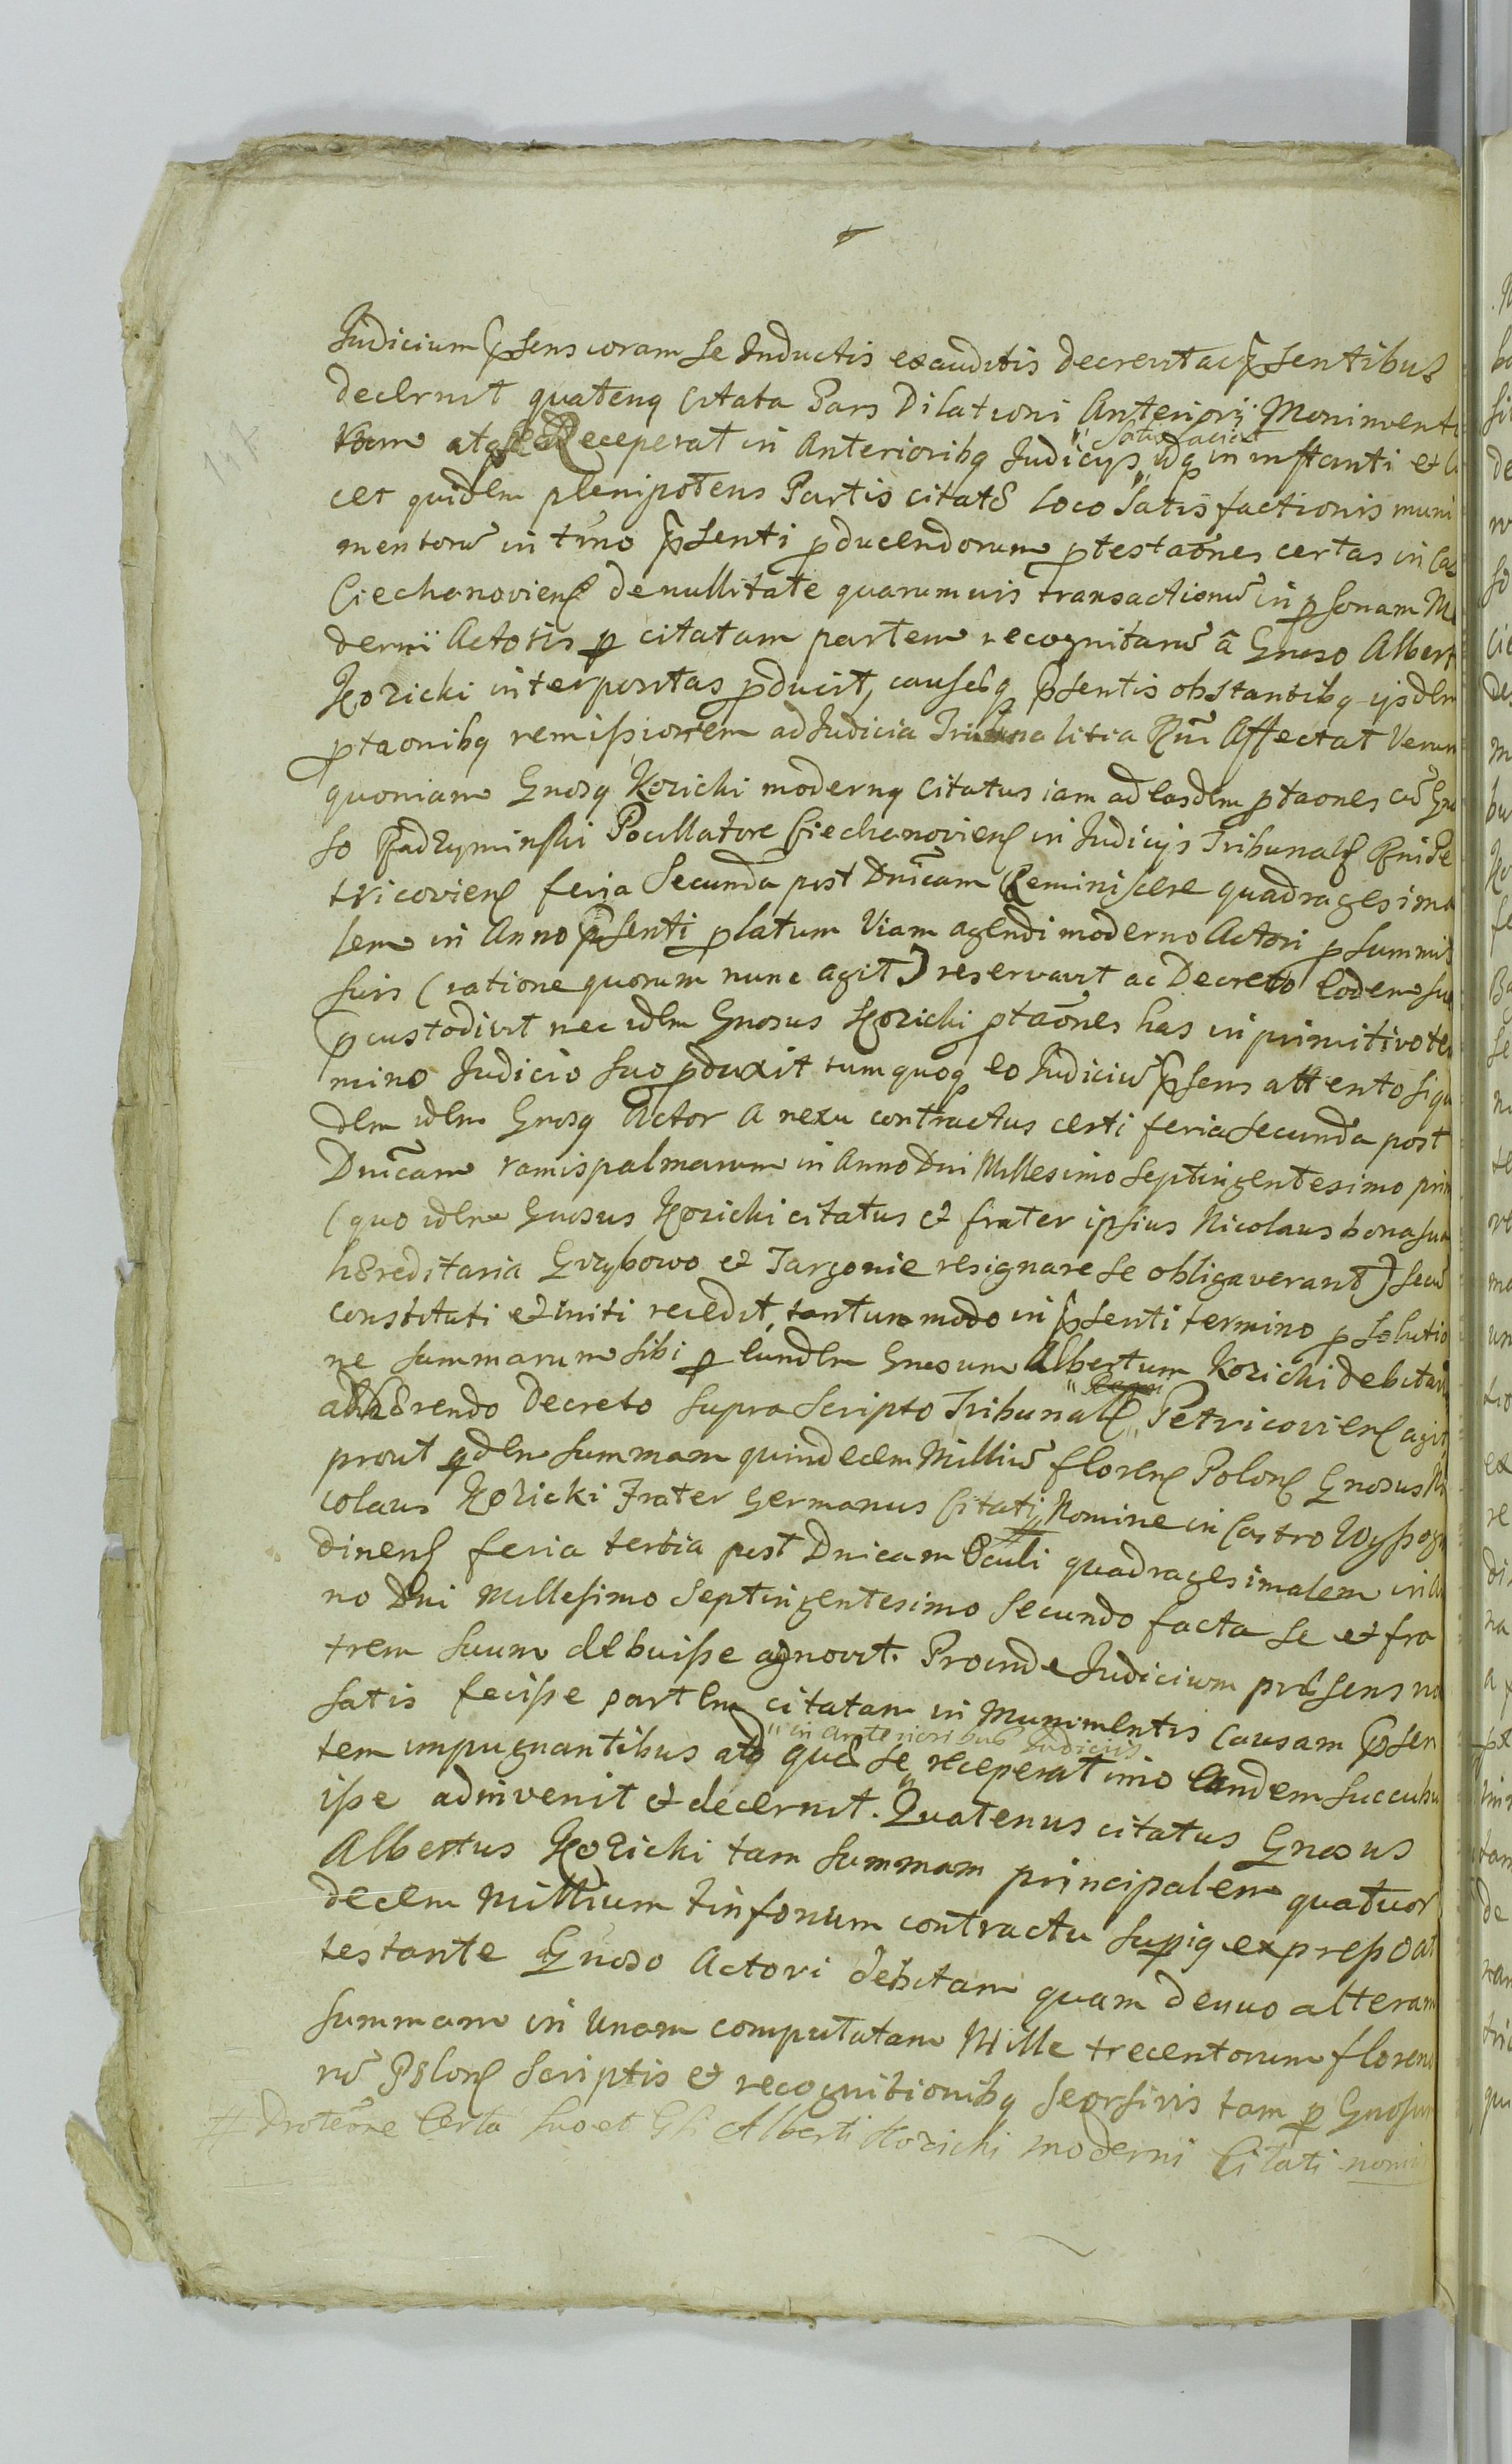 Judicium psens coram se Inductis exauditis decrevit ac psentibus
decernit quatenq Citata Pars Dilationi Anteriori Moniment
atq Receperat in Anterioribq Judicijs idq in instanti et
satisfaciat
cet quidem plenipotens Partis citatæ loco satisfactionis muni
mentorū in tmo psenti pducendorum ptestaōnes certas in Cas
Ciechanovien de nullitate quarumvis transactionū in psonam Mo
derni Actoris p citatam partem recognitarū â Gnoso Albert
Kozicki interpositas pducit, causæq psentis obstantibq ijsdem
ptaonibq remissionem ad Judicia Tribunalitia Rni Affectat Verum
quoniam Gnosq Kozicki modernq Citatus iam ad easdem ptaones cū Gno
so Radzyminski Pocillatore Ciechanovien in Judicijs Tribunal Rni Pe
tricovien feria Secunda post Dnicam Reminiscere quadragesima
lem in Anno psenti platum Viam agendi moderno Actori p summis
suis (ratione quorum nunc agit) reservavit ac Decreto eodem suo
pcustodivit nec idem Gnosus Kozicki ptaōnes has in primitivo ter
mino Judicio suo pduxit tum quoq eo Judiciū psens attento siqu
dem idem Gnosq Actor a nexu contractus certi feria secunda post
Dnicam ramispalmarum in Anno Dni Millesimo Septingentesimo prim
(quo idem Gnosus Kozicki citatus et frater ipsius Nicolaus bona sua
hæreditaria Grzybowo et Targonie resignare se obligaverant) secū
constituti et initi recedit, tantum modo in psenti termino p solutio
ne summarum sibi p eundem Gnosum Albertum Kozicki debitaru
adhærendo Decreto supra scripto Tribunal Petricovien agit,
prout qdem summam quindecem Milliū floren Polon Gnosus Ni
colaus Kozicki Frater Germanus Citati Nomine in Castro Wyssogr
dinen feria tertia post Dnicam Oculi quadragesimalem in An
no Dni Millesimo Septingentesimo Secundo facta se et fra
trem suum debuisse agnovit. Proinde Judicium præsens no
satis fecisse partem citatam in Munimentis Causam psen
tem impugnantibus ad quæ se receperat imo eandem succubu
in anterioribus Judiciis
isse adinvenit et decernit. Quatenus citatus Gnosus
Albertus Kozicki tam summam principalem quatuor
decem Millium tinfonum contractu supiq expresso at
testante Gnoso Actori debitam quam denuo alteram
summam in unam computatam Mille trecentorum floren
rū Polon scriptis et recognitionibq seorsivis tam p Gnosum
# Certa suo et Gsi Alberti Kozicki moderni Citati nomin